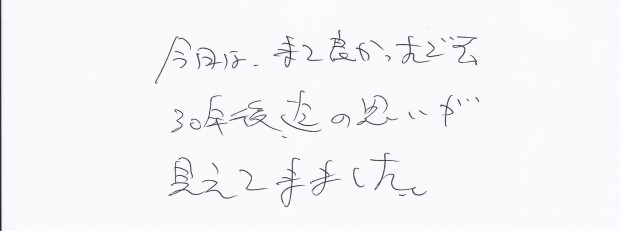 今日は、まで良かったです
30年後迄の思いが
見えてきました。